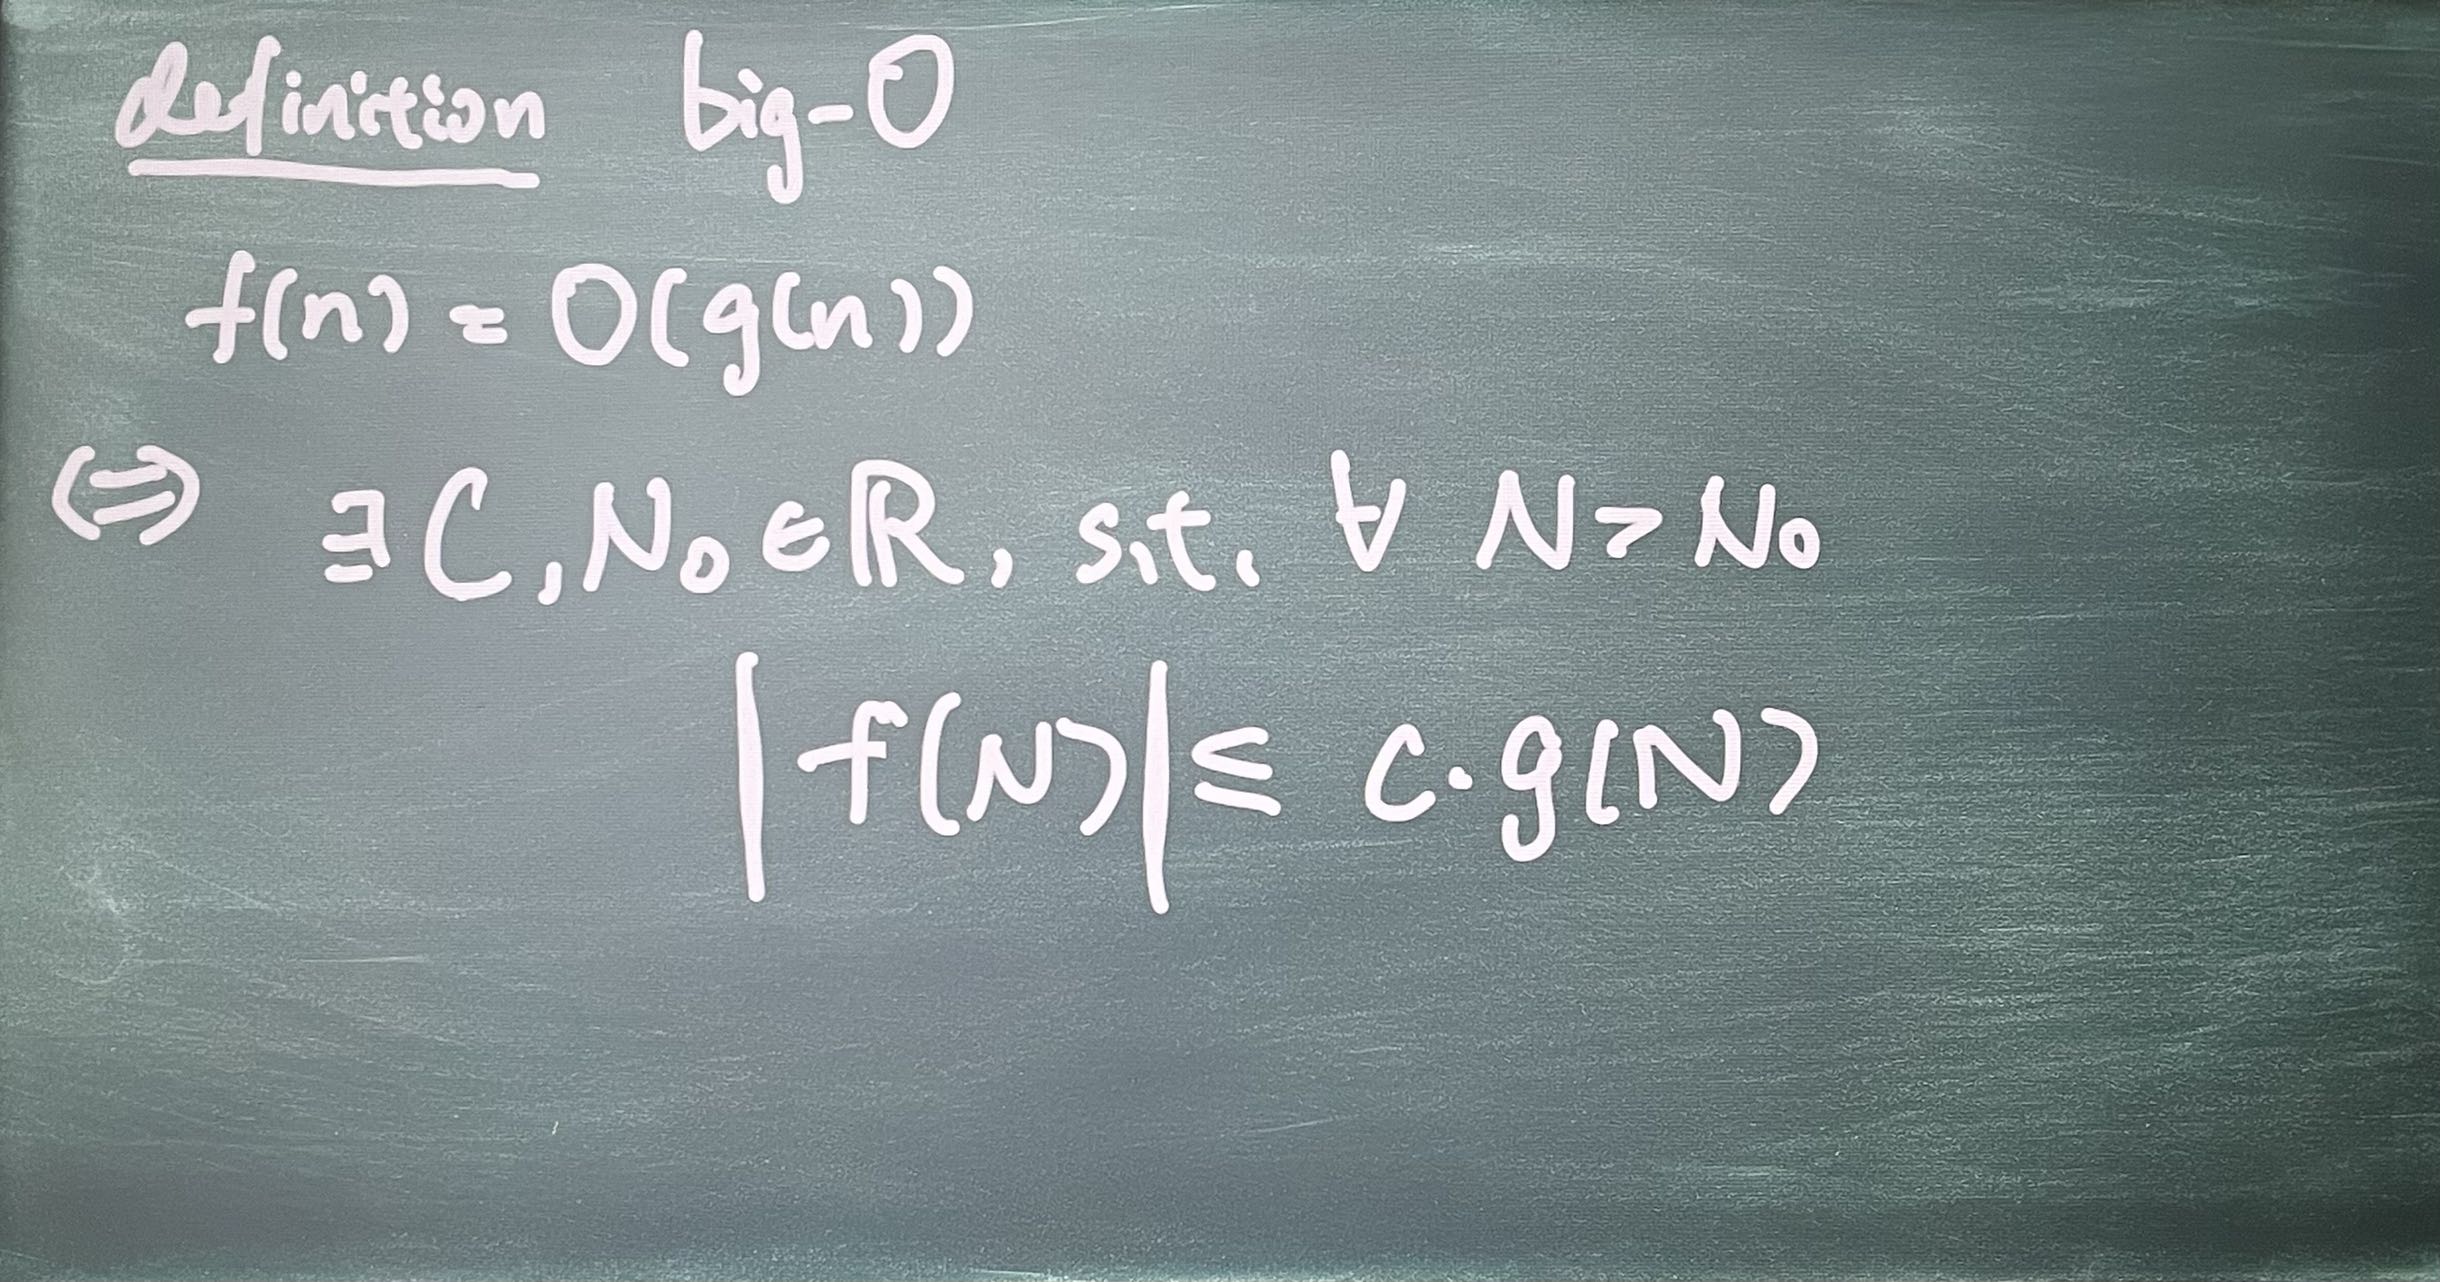 definition big-O
f(n) = O(g(n))
⇔ ∃ C, N₀ ∈ ℝ, s.t. ∀ N > N₀
|f(N)| ≤ C·g(N)